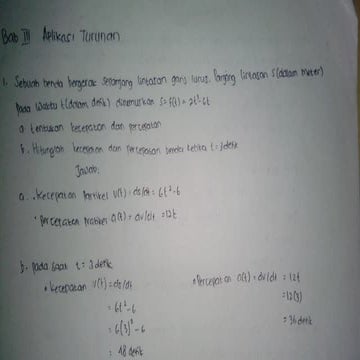 Bab III Aplikasi Turunan
1. Sebuah benda bergerak sepanjang lintasan garis lurus. Panjang lintasan S (dalam meter)
Pada waktu t (dalam detik) dirumuskan S = f(t) = 2t³-6t
a. tentukan kecepatan dan percepatan
b. Hitunglah kecepatan dan percepatan benda ketika t = 3 detik
Jawab:
a. • Kecepatan Partikel V(t) = ds/dt = 6t²-6
• Percepatan Partikel a(t) = dv/dt = 12t
b. Pada saat t = 3 detik
• kecepatan V(t) = ds/dt
= 6t²-6
= 6(3)²-6
= 48 detik
• Percepatan a(t) = dv/dt = 12t
= 12(3)
= 36 detik